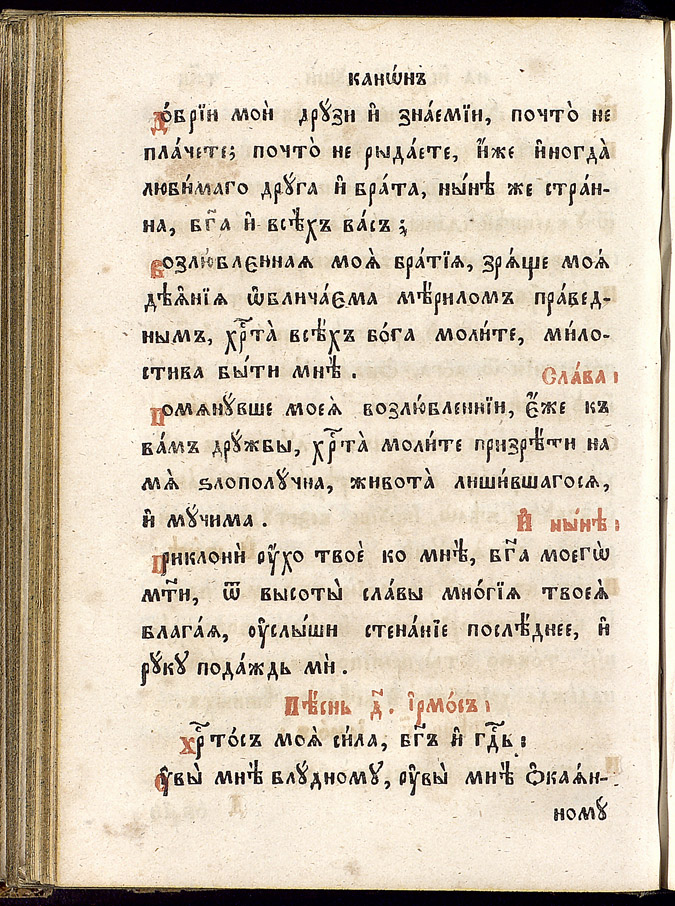 канѡ́нъ
до́брїи мои̑ дрꙋ́зи и҆ зна́емїи, почто̀ не
пла́чете; почто̀ не рыда́ете, и҆́же и҆ногда̀
люби́маго дрꙋ́га и҆ бра́та, ны́нѣ же стра́н-
на, бг҃а и҆ всѣ́хъ ва́съ;
возлю́бленная моѧ̀ бра́тїѧ, зрѧ́ще моѧ̑
дѣѧ̑нїѧ ѡ҆блича́єма мѣ́риломъ пра́вед-
нымъ, хрⷭ҇та̀ всѣ́хъ бо́га моли́те, ми́ло-
стива бы́ти мнѣ̀.
Сла́ва:
помѧнꙋ́вше моеѧ̀ возлю́бленнїи, є҆́же къ
ва́мъ дрꙋ́жбы, хрⷭ҇та̀ моли́те призрѣ́ти на
мѧ̀ ѕлополꙋ́чна, живота̀ лиши́вшагосѧ,
и҆ мꙋ́чима.
И҆ ны́нѣ:
приклонѝ ᲂу҆́хо твоѐ ко мнѣ̀, бг҃а моегѡ̀
мт҃и, ѿ высоты̀ сла́вы мно́гїѧ твоеѧ̀
блага́ѧ, ᲂу҆слы́ши стена́нїе послѣ́днее, и҆
рꙋ́кꙋ пода́ждь мѝ.
Пѣ́снь д҃. і҆рмо́съ:
хрⷭ҇то́съ моѧ̀ си́ла, бг҃ъ и҆ гдⷭ҇ь:
ᲂу҆вы̀ мнѣ̀ блꙋ́дномꙋ, ᲂу҆вы̀ мнѣ̀ ѻ҆каѧ́н-
номꙋ